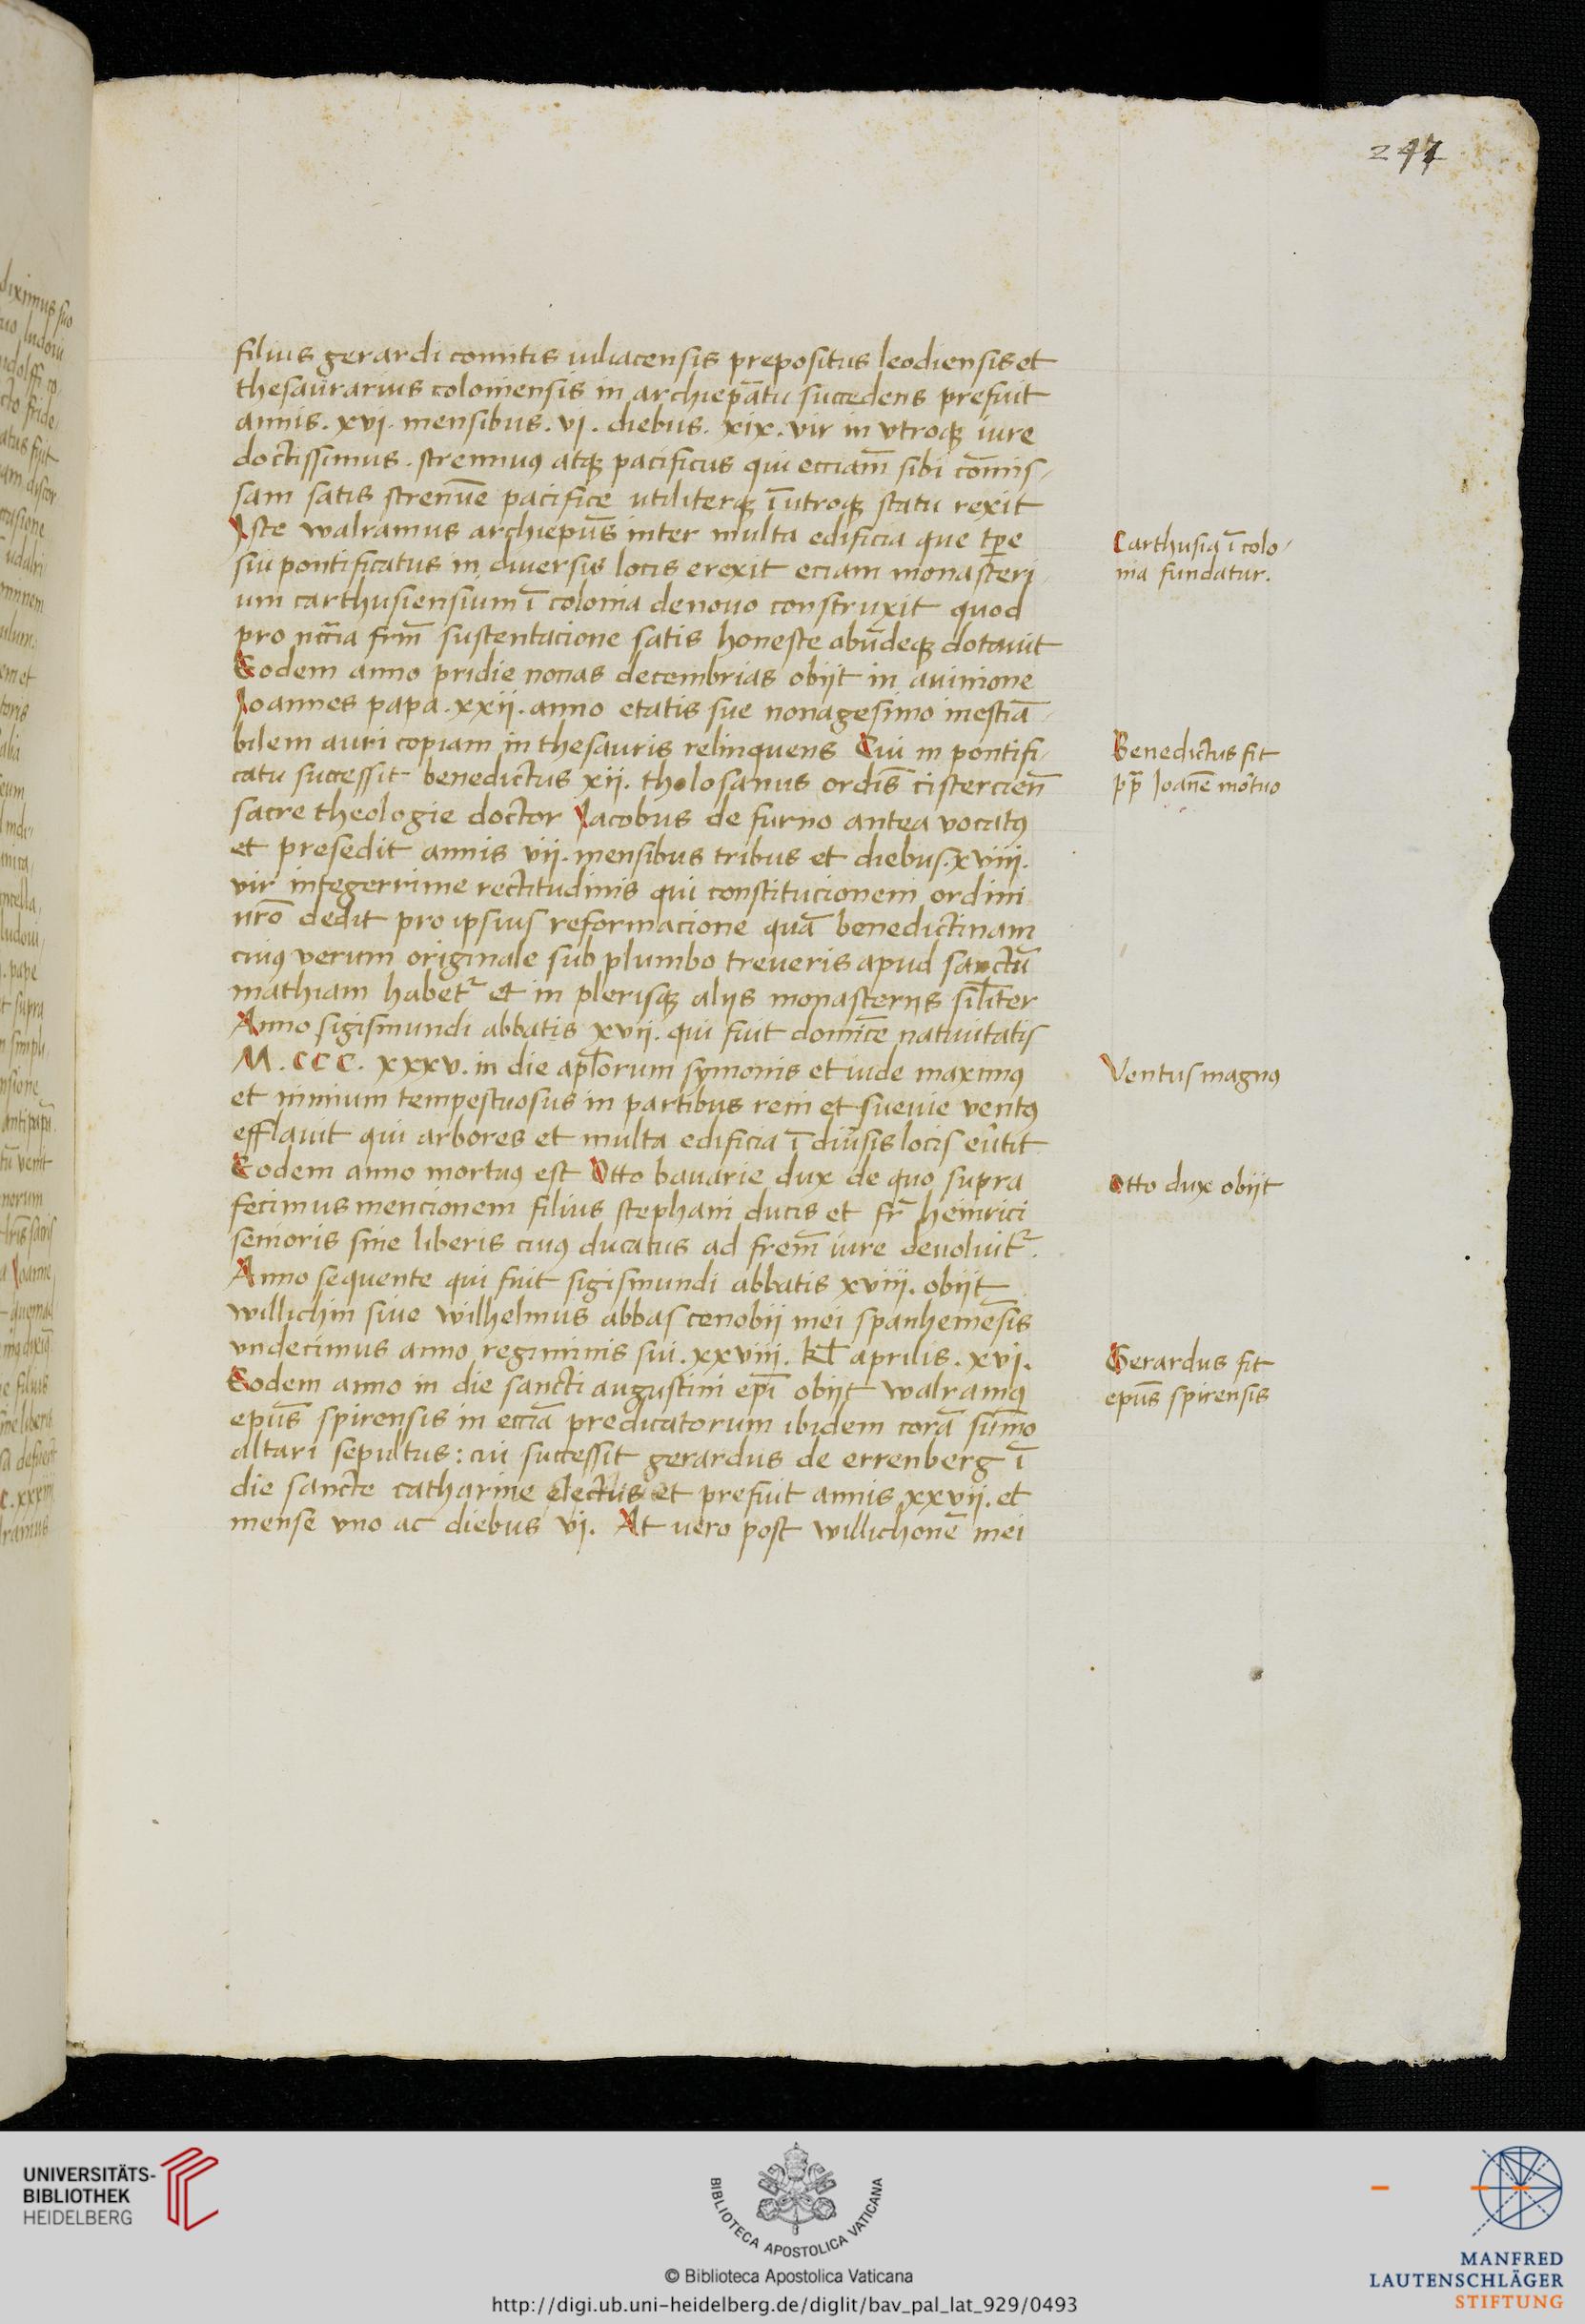 247
filius gerardi comitis iuliacensis prepositus leodiensis et
thesaurarius coloniensis in archiep̄atu succedens prefuit
annis . xvj . mensibus . vj . diebus . xix . vir in vtroqꝫ iure
doctissimus . strennuꝰ atqꝫ pacificus qui ecciam̄ sibi com̄is-
sam satis strenue pacifice utiliterqꝫ ī utroqꝫ statu rexit
Iste walramus archiepūs inter multa edificia que tp̄e
sui pontificatus in diversis locis erexit eciam monasteri-
um carthusiensium ī colonia denouo construxit quod
pro nccīa frm̄ sustentacione satis honeste abūdeqꝫ dotauit
Eodem anno pridie nonas decembrias obijt in auinione
Ioannes papa . xxij . anno etatis sue nonagesimo inestiā-
bilem auri copiam in thesauris relinquens Cui in pontifi-
catu successit benedictus xij . tholosanus ordis̄ cistercien̄
sacre theologie doctor Iacobus de furno antea vocatꝰ
et presedit annis vij . mensibus tribus et diebus . xviij .
vir integerrime rectitudinis qui constitucionem ordini
nr̄o dedit pro ipsius reformacione quā benedictinam
cuiꝰ verum originale sub plumbo treueris apud sanctū
mathiam habetᵣ et in plerisqꝫ alijs monasterijs sil̄iter
Anno sigismundi abbatis xvij . qui fuit domīce natiuitatis
M . CCC . xxxv . in die apl̄orum symonis et iude maximꝰ
et nimium tempestuosus in partibus reni et sueuie ventꝰ
efflauit qui arbores et multa edificia ī diūsis locis eūtit
Eodem anno mortuꝰ est Otto bauarie dux de quo supra
fecimus mencionem filius stephani ducis et fr̄ heinrici
senioris sine liberis cuiꝰ ducatus ad frem̄ iure deuoluitᵣ .
Anno sequente qui fuit sigismundi abbatis xviij . obijt
willichin siue wilhelmus abbas cenobii mei spanhemēsis
vndecimus anno regiminis sui . xxviij . kl̄ aprilis . xvj .
Eodem anno in die sancti augustini ep̄i obijt walramꝰ
epūs spirensis in eccīa predicatorum ibidem corā sum̄o
altari sepultus : cui successit gerardus de errenberg ī
die sancte catharine electus et prefuit annis xxvij . et
mense vno ac diebus vj . At vero post willichonē mei
Carthusia ī colo-
nia fundatur .
Benedictus fit
pp̄ Ioanē mortuo
Ventus magnꝰ
Otto dux obijt
Gerardus fit
epūs spirensis
UNIVERSITÄTS-
BIBLIOTHEK
HEIDELBERG
BIBLIOTECA APOSTOLICA VATICANA
© Biblioteca Apostolica Vaticana
http://digi.ub.uni-heidelberg.de/diglit/bav_pal_lat_929/0493
MANFRED
LAUTENSCHLÄGER
STIFTUNG